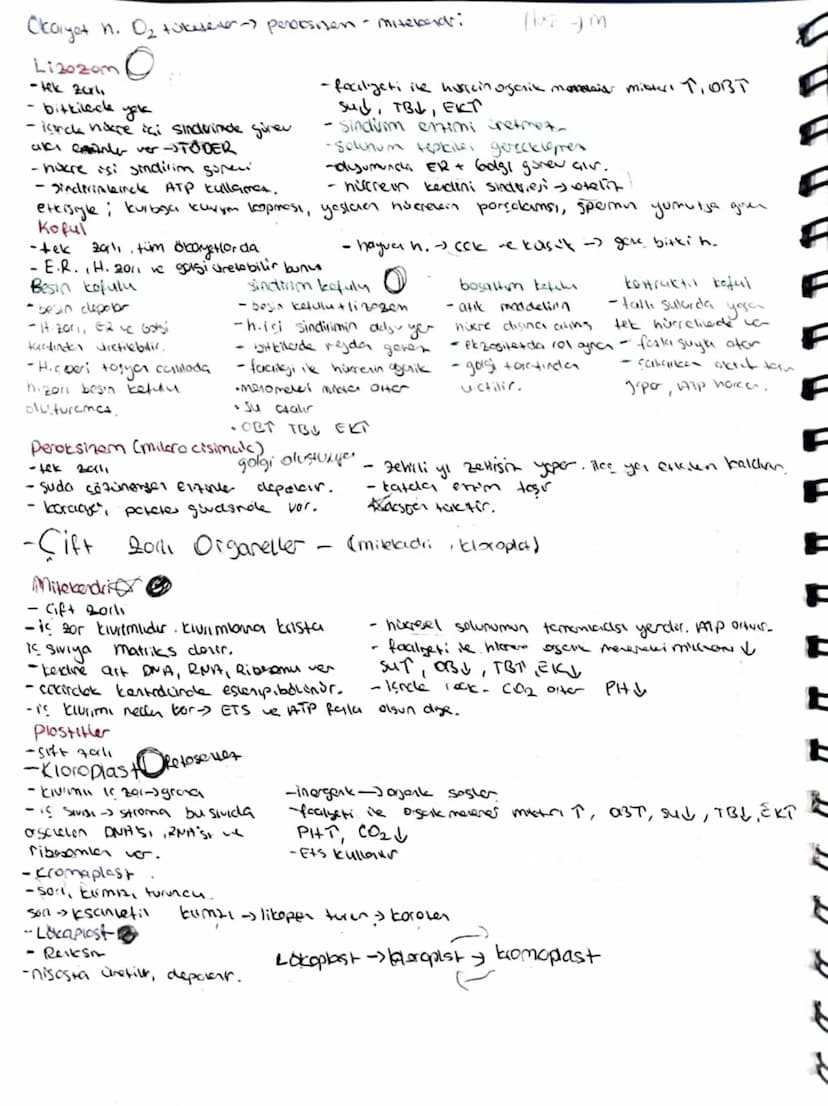 Ökaryot h. O2 tüketenler → peroksizom - mitokondri
Lizozom
- tek zarlı
- bitkilerde yok
- içinde hücre içi sindirimde görev
alan enzimler var → TÖDER
- hücre içi sindirim görevi
- sindirimlerinde ATP kullanmaz.
- faaliyeti ile hücrenin organik monomer miktarı ↑, OBT
su↓, TB↓, EKT
- sindirim enzimi üretmez.
- solunum tepkileri gerçekleşmez
- oluşumunda ER + Golgi görev alır.
- hücrenin kendini sindirmesi → otoliz
etkisiyle; kurbağa kuyruğu kopması, yaşlanan hücrelerin parçalanması, spermin yumurtaya girm
Koful
- tek zarlı, tüm ökaryotlarda
- E.R., H. zarı ve golgi üretebilir bunu
- hayvan h. → çok ve küçük → gen bitki h.
Besin kofulu
- besin depolar
- H. zarı, ER ve Golgi
tarafından üretilebilir.
- H. çeperi taşıyan canlılarda
h. zarı besin kofulu
oluşturamaz.
sindirim kofulu
- besin kofulu + lizozom
- h. içi sindirimin olduğu yer
- bitkilerde görev
- faaliyeti ile hücrenin organik
• monomer miktarı artar
• su azalır
• OBT TB↓ EKT
boşaltım kofulu
- atık maddelerin
hücre dışına atılmış
- ekzositozda rol oynar
- golgi tarafından
üretilir.
kontraktil koful
- tatlı sularda yaşayan
tek hücrelilerde var
- fazla suyu atar
- çalışırken aktif taşıma
yapar, ATP harcar.
Peroksizom (mikro cisimcik)
golgi oluşturuyor
- tek zarlı
- suda çözünemeyen enzimler depolanır.
- karaciğer, patates gövdesinde var.
- zehirli yı zehirsiz yapar. ilaç etkiden kaldırır.
- katalaz enzim taşır
- Çift Zarlı Organeller - (mitokondri, kloroplast)
Mitokondri
- Çift zarlı
- iç zar kıvrımlıdır. kıvrımlarına krista
iç sıvıya matriks denir.
- kendine ait DNA, RNA, Ribozomu var
- çekirdek kontrolünde eşlenip, bölünür.
- iç kıvrımı neden var → ETS ve ATP fazla olsun diye.
- hücresel solunumun tamamlandığı yerdir. ATP artırır.
- faaliyeti ile hücrenin organik monomer miktarı ↓
SU↑, OB↓, TB↑, EK↓
- CO2 artar PH↓
Plastitler
- Çift zarlı
- Kloroplast Fotosentez
- kıvrımlı iç zar → grana
- iç sıvısı → stroma bu sıvıda
DNA'sı, RNA'sı ve
ribozomları var.
- inorganik → organik sağlar
- faaliyeti ile organik monomer miktarı ↑, OBT, SU↓, TB↓, EKT
PH↑, CO2↓
- ETS kullanılır
- Kromoplast
- sarı, kırmızı, turuncu
sarı → ksantofil kırmızı → likopen turun → karoten
- Lökoplast
- Renksiz
- nişasta üretilir, depolanır.
Lökoplast → kloroplast → kromoplast